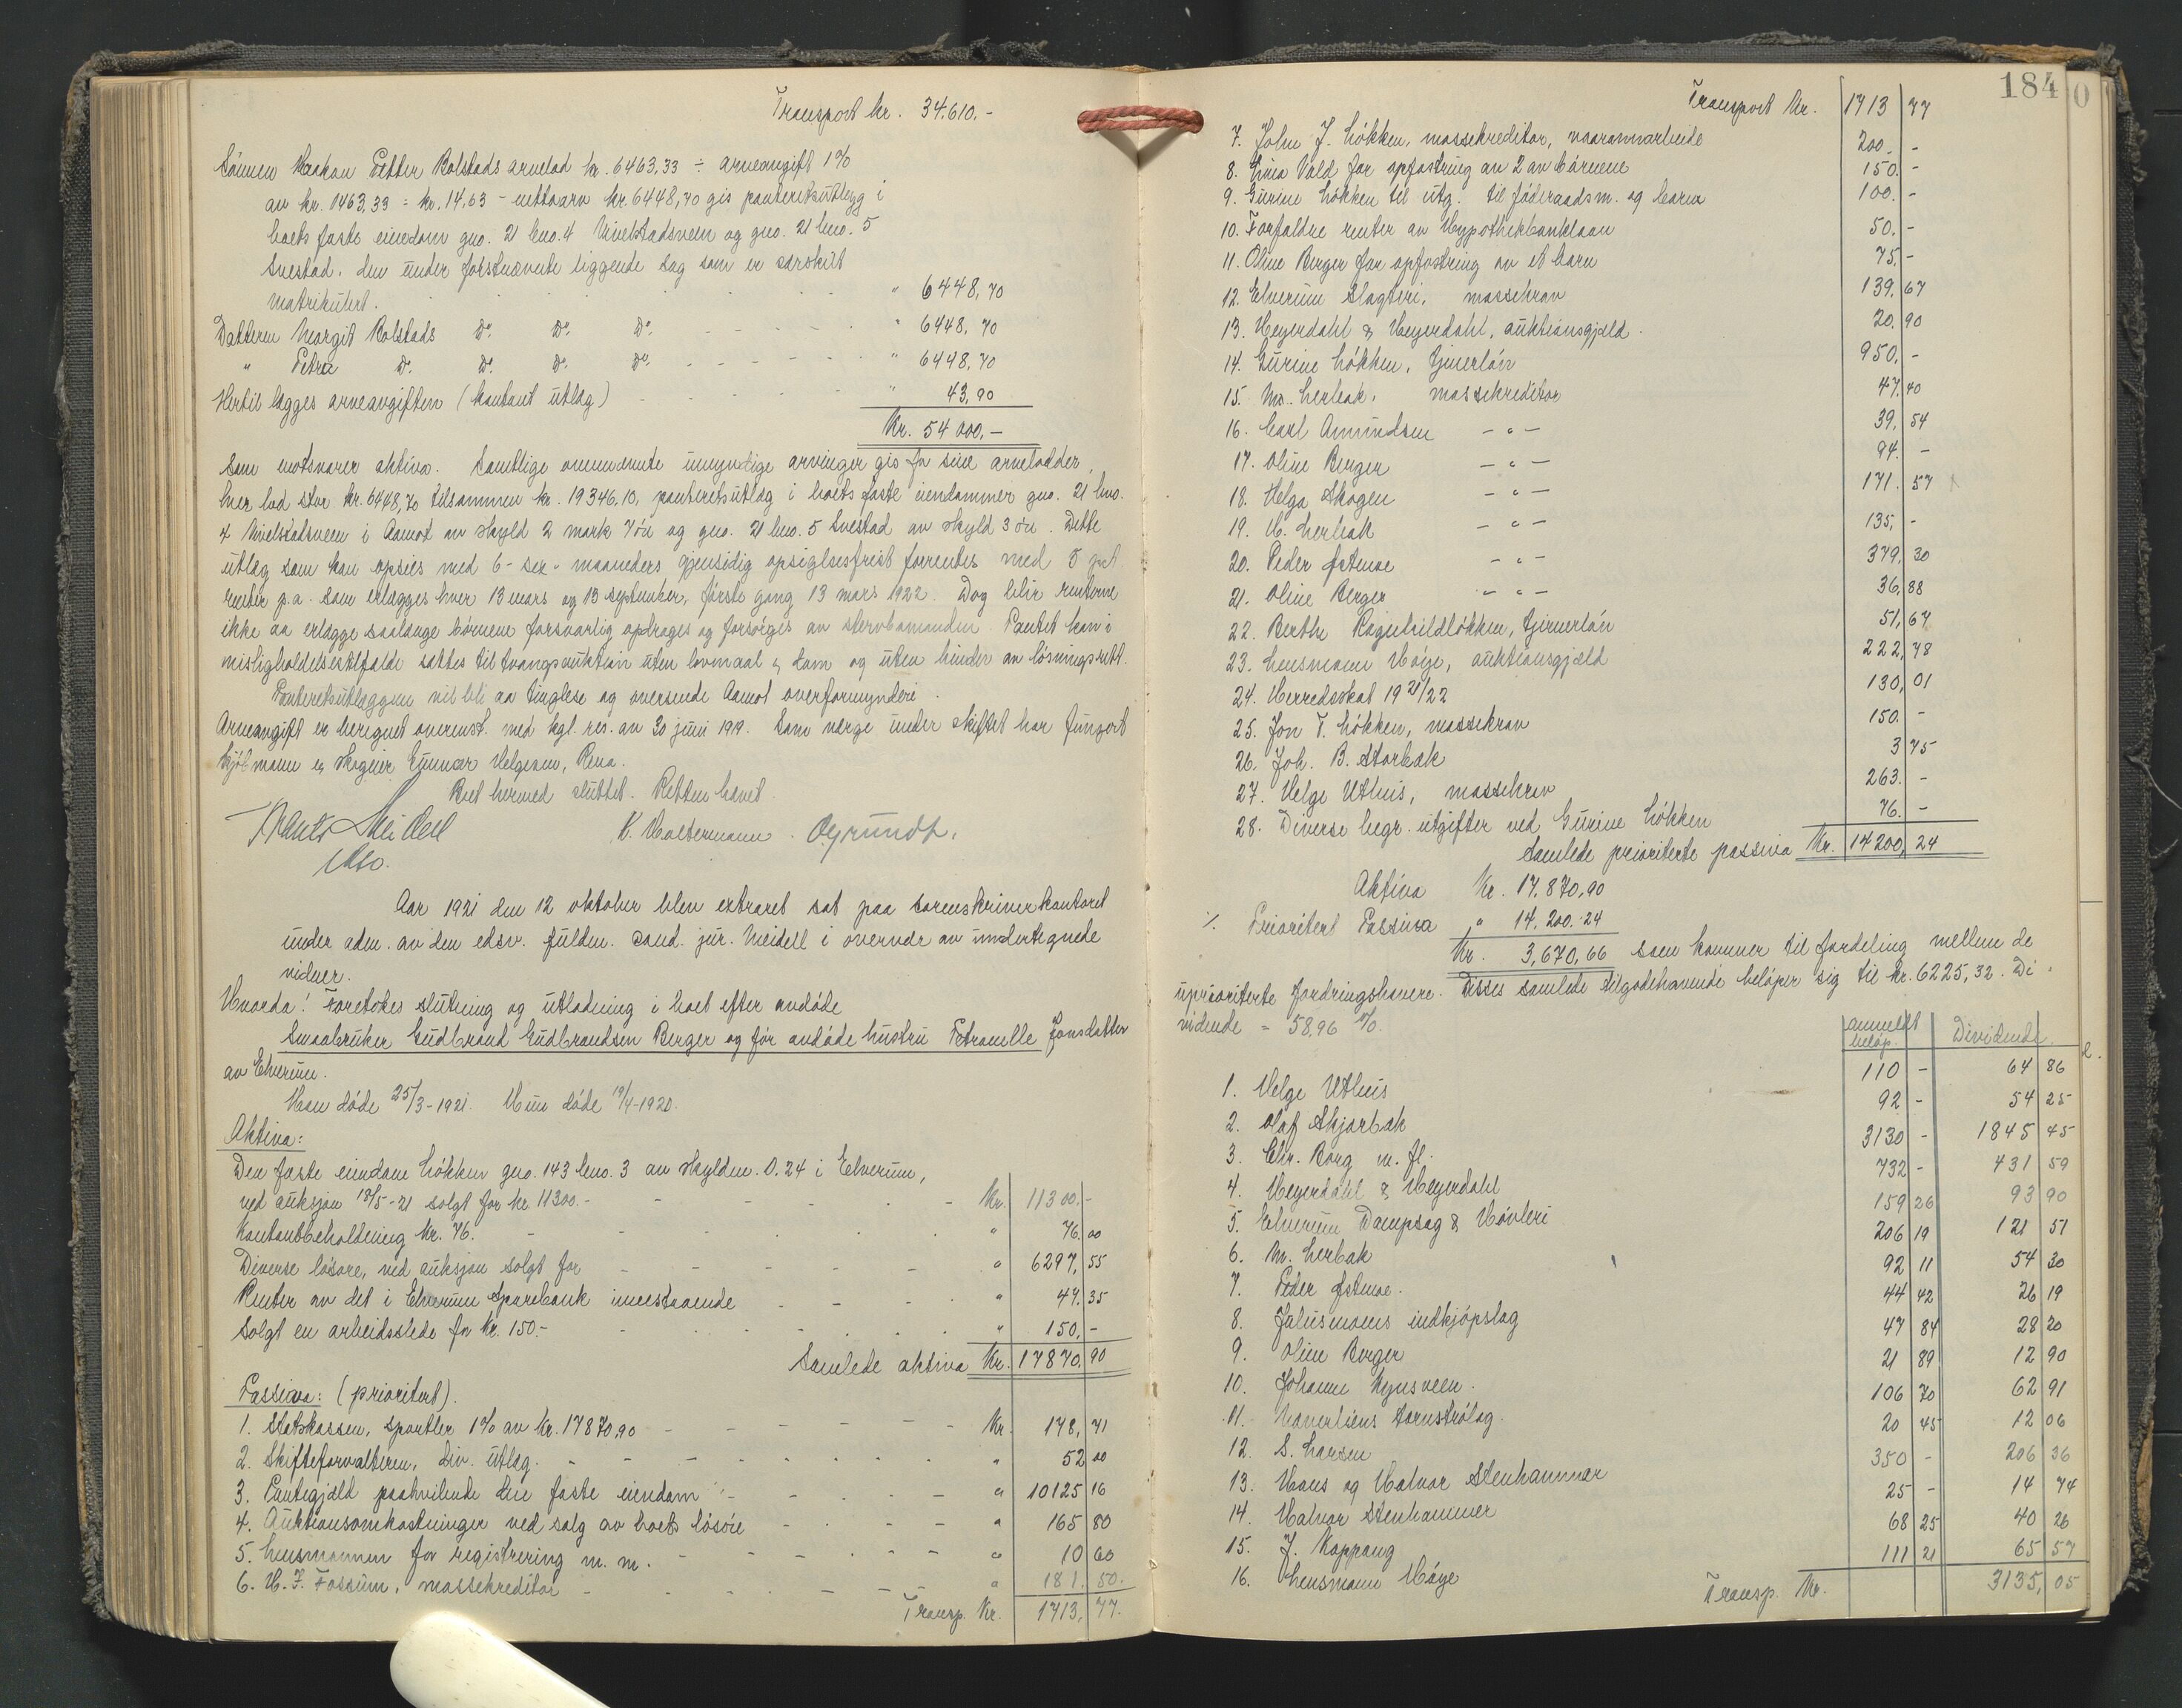 Transport kr. 34.610.-
Sönnen Haakon Petter Rolstads arvelod kr. 6463,33 ÷ arveavgift 1%
av kr. 1463,33 = kr. 14,63 - nettoarv kr. 6448,70 gis panteretsutlegg i
boets faste eiendom gno. 21 bno. 4 og gno. 21 bno. 5
Svestad, den under liggende sag som er særskilt
matrikulert. " 6448,70
Datteren Margit Rolstads Do. Do. Do. " 6448,70
" Petra Do. Do. Do. Do. " 6448,70
Hertil lægges arveavgiften (kontant utlæg) " 43,90
Kr. 54 000,-
Som motsvarer aktiva. Samtlige umyndige arvinger gis for sine arvelodder,
hver lod stor kr. 6448,70 tilsammen kr. 19346,10, panteretsutlæg i boets faste eiendommer gno. 21 bno.
4 i Aamot av skyld 2 mark 7 öre og gno. 21 bno. 5 Svestad av skyld 3 öre. Dette
utlæg som kan opsies med 6- sex - maaneders gjensidig opsigelsesfrist forrentes med 5 pct.
renter p.a. som erlægges hver 13 mars og 13 september, förste gang 13 mars 1922. Dog blir renterne
ikke aa erlægge saalænge börnene forsvarlig opdrages og forsörges av stervbomanden. Pantet kan i
misligholdelsestilfælde sættes til tvangsauktion uten lovmaal & dom og uten hinder av lösningsrett.
Panteretsutlæggene vil bli aa tinglese og oversende Aamot overformynderi.
Arveavgift er beregnet overenst. med kgl. res. av 30 juni 1919. Som værge under skiftet har fungert
kjöbmann og skogeier Gunnar Helgesen, Rena.
Boet hermed sluttet. Retten hævet.
Meidell
K. Haltermann. O. Grundt.
Aar 1921 den 12 oktober blev extraret sat paa sorenskriverkontoret
under adm. av den edsv. fuldm. cand. jur. Meidell i overvær av undertegnede
vidner.
Hvorda! Foretokes slutning og utlodning i boet efter avdöde
Smaabruker Gudbrand Gudbrandsen Berger og för avdöde hustru Petronelle Jonsdatter
av Elverum.
Han döde 25/3-1921. Hun döde 19/4-1920.
Aktiva:
Den faste eiendom Lökken gno. 143 bno. 3 av skyldm. 0.24 i Elverum,
ved auksjon 18/5-21 solgt for kr. 11300.- Kr. 11300.-
Kontantbeholdning kr. 76. " 76.00
Diverse lösöre, ved auksjon solgt for " 6297,55
Renter av det i Elverum Sparebank innestaaende " 47.35
Solgt en arbeidsslede for kr. 150.- " 150,-
Samlede aktiva Kr. 17870,90
Passiva: (prioritert).
1. Statskassen, sportler 1% av kr. 17870,90 Kr. 178,71
2. Skifteforvalteren, div. utlæg. " 52 00
3. Pantegjæld paahvilende den faste eiendom " 10125 16
4. Auktionsomkostninger ved salg av boets lösöre " 165 80
5. Lensmannen for registrering m. m. " 10 60
6. H. F. Fossum, massekreditor " 181. 50.
Transp. Kr. 1713,77.
184
Transport Kr. 1713 77
7. John J. Lökken, massekreditor, vaaronnarbeide 200. -
8. Vold for opfostring av 2 av börnene 150. -
9. Gurine Lökken til utg. til föderaadsm. og barn 100. -
10. Forfaldne renter av Hypothekbanklaan 50. -
11. Oline Berger for opfostring av et barn 75. -
12. Elverum Slagteri, massekrav 139,67
13. Heyerdahl & Heyerdahl, auktionsgjæld. 20,90
14. Gurine Lökken, tjenerlön 950. -
15. M. Lerbak, massekreditor 47,40
16. Carl Amundsen - " - 39,54
17. Oline Berger - " - 94. -
18. Helga Skogen - " - 171.57
19. M. Lerbak - " - 135, -
20. Peder Østmoe - " - 379,30
21. Oline Berger - " - 36,88
22. Berthe Ragnhildlökken, tjenerlön 51,67
23. Lensmann Höye, auktionsgjæld 222,78
24. Herredsskat 1921/22 130,01
25. Jon T. Lökken, massekrav 150. -
26. Joh. B. Storbæk 3 75
27. Helge Uthus, massekrav 263. -
28. Diverse begr. utgifter ved Gurine Lökken 76. -
Samlede prioriterte passiva Kr. 14200,24
Aktiva Kr. 17.870,90
./. Prioritert Passiva " 14.200.24
Kr. 3,670,66 som kommer til fordeling mellem de
uprioriterte fordringshavere. Disses samlede tilgodehavende belöper sig til kr. 6225,32. Di-
vidende = 58,96 %.
anmeldt belöp. Dividende
1. Helge Uthus 110 - 64 86
2. Olaf Skjærbæk 92 - 54 25
3. Chr. Borg m. fl. 3130 - 1845 45
4. Heyerdahl & Heyerdahl 732 - 431 59
5. Elverum Dampsag & Hövleri 159 26 93 90
6. M. Lerbak 206 19 121 51
7. Peder Østmoe. 92 11 54 30
8. Julusmoens indkjöpslag 44 42 26 19
9. Oline Berger 47 84 28 20
10. Johann Nynsveen. 21 89 12 90
11. Hoverliens 106 70 62 91
12. S. Larsen 20 45 12 06
13. Hans og Halvor Stenhammer 350 - 206 36
14. Halvor Stenhammer 25 - 14 74
15. J. Koppang 68 25 40 26
16. Lensmann Höye 111 21 65 57
Transp. Kr. 3135,05